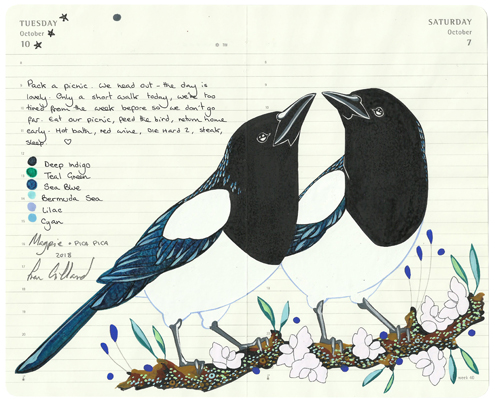 TUESDAY
October
10
SATURDAY
October
7
Pack a picnic. We head out - the day is
lovely. Only a short walk today, we're too
tired from the week before so we don't go
far. Eat our picnic, feed the bird, return home
early. Hot bath, red wine, Die Hard 2, steak,
sleep
Deep Indigo
Teal Green
Sea Blue
Bermuda Sea
Lilac
Cyan
Magpie • PICA PICA
2018